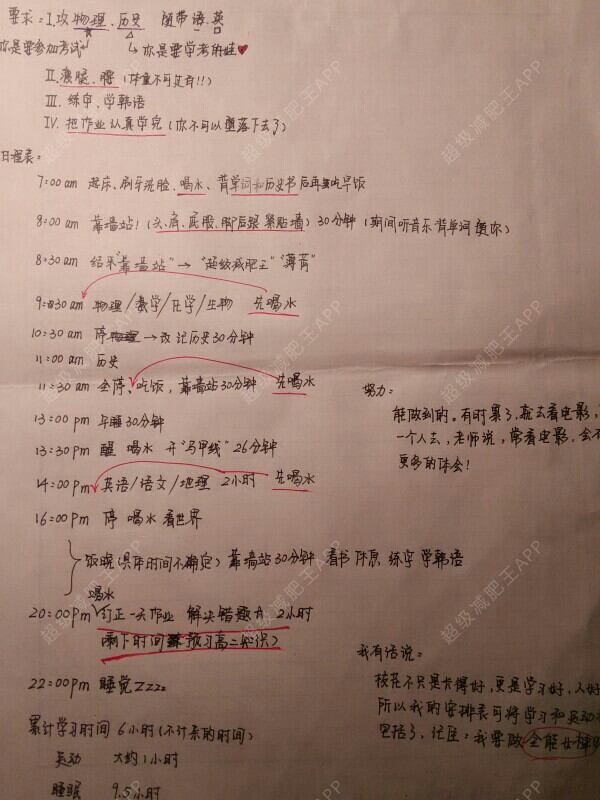 要求: I.攻物理、历史 随带语.英
你是要参加考试 ↳ 你是要学考的娃♥
II.瘦腿、腰 (体重不可反弹!!)
III. 练字、学韩语
IV. 把作业认真学完 (你不可以堕落下去了)
日程表:
7:00 am 起床、刷牙洗脸、喝水、背单词和历史书后再去吃早饭
8:00 am 靠墙站! (头、肩、屁股、脚后跟 紧贴墙) 30分钟 (期间听音乐 背单词 随你)
8:30 am 结束"靠墙站" → "超级减肥王" "薄荷"
9:30 am 物理/数学/化学/生物 先喝水
10:30 am 停 物理 → 改记历史30分钟
11:00 am 历史
11:30 am 全停、吃饭, 靠墙站30分钟 先喝水
13:00 pm 午睡30分钟
13:30 pm 醒 喝水 开"马甲线" 26分钟
14:00 pm 英语/语文/地理 2小时 先喝水
16:00 pm 停 喝水 看世界
饭晚(具体时间不确定) 靠墙站30分钟 看书 休息 练字 学韩语
喝水
20:00 pm 订正一天作业 解决错题 2小时
(剩下时间 预习高二知识)
22:00 pm 睡觉Zzzz
累计学习时间 6小时(不计累的时间)
运动 大约1小时
睡眠 9.5小时
努力:
能做到的。有时累了,就去看电影,
一个人去,老师说,常看电影,会有
更多的体会!
我有话说:
校花不只是长得好,更是学习好,人好
所以我的安排表可将学习和运动
包括了,记住:我要做全能女神